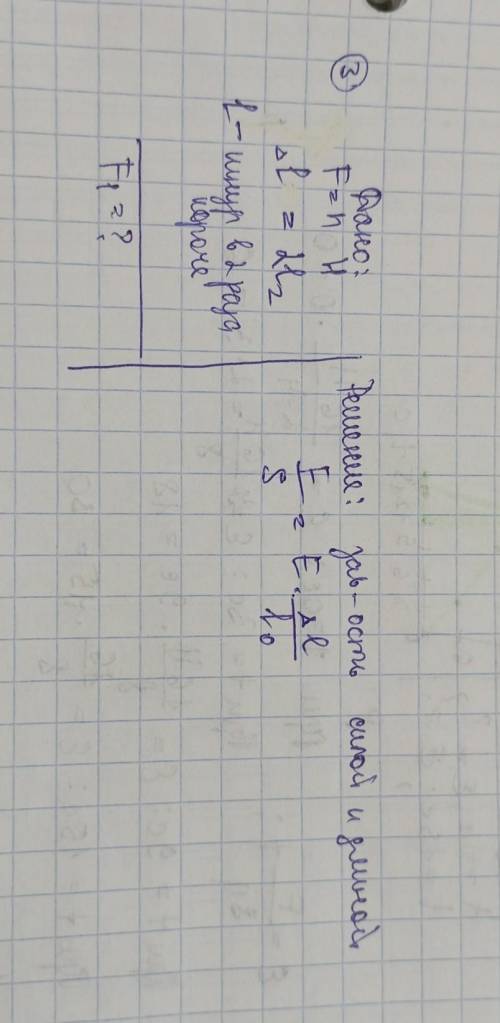 ③ Дано:
F = n Н
Δl = 2l₂
L - шнур в 2 раза
короче
F₁ = ?
Решение: зав-ость силой и длиной
F/S = E · Δl/l₀